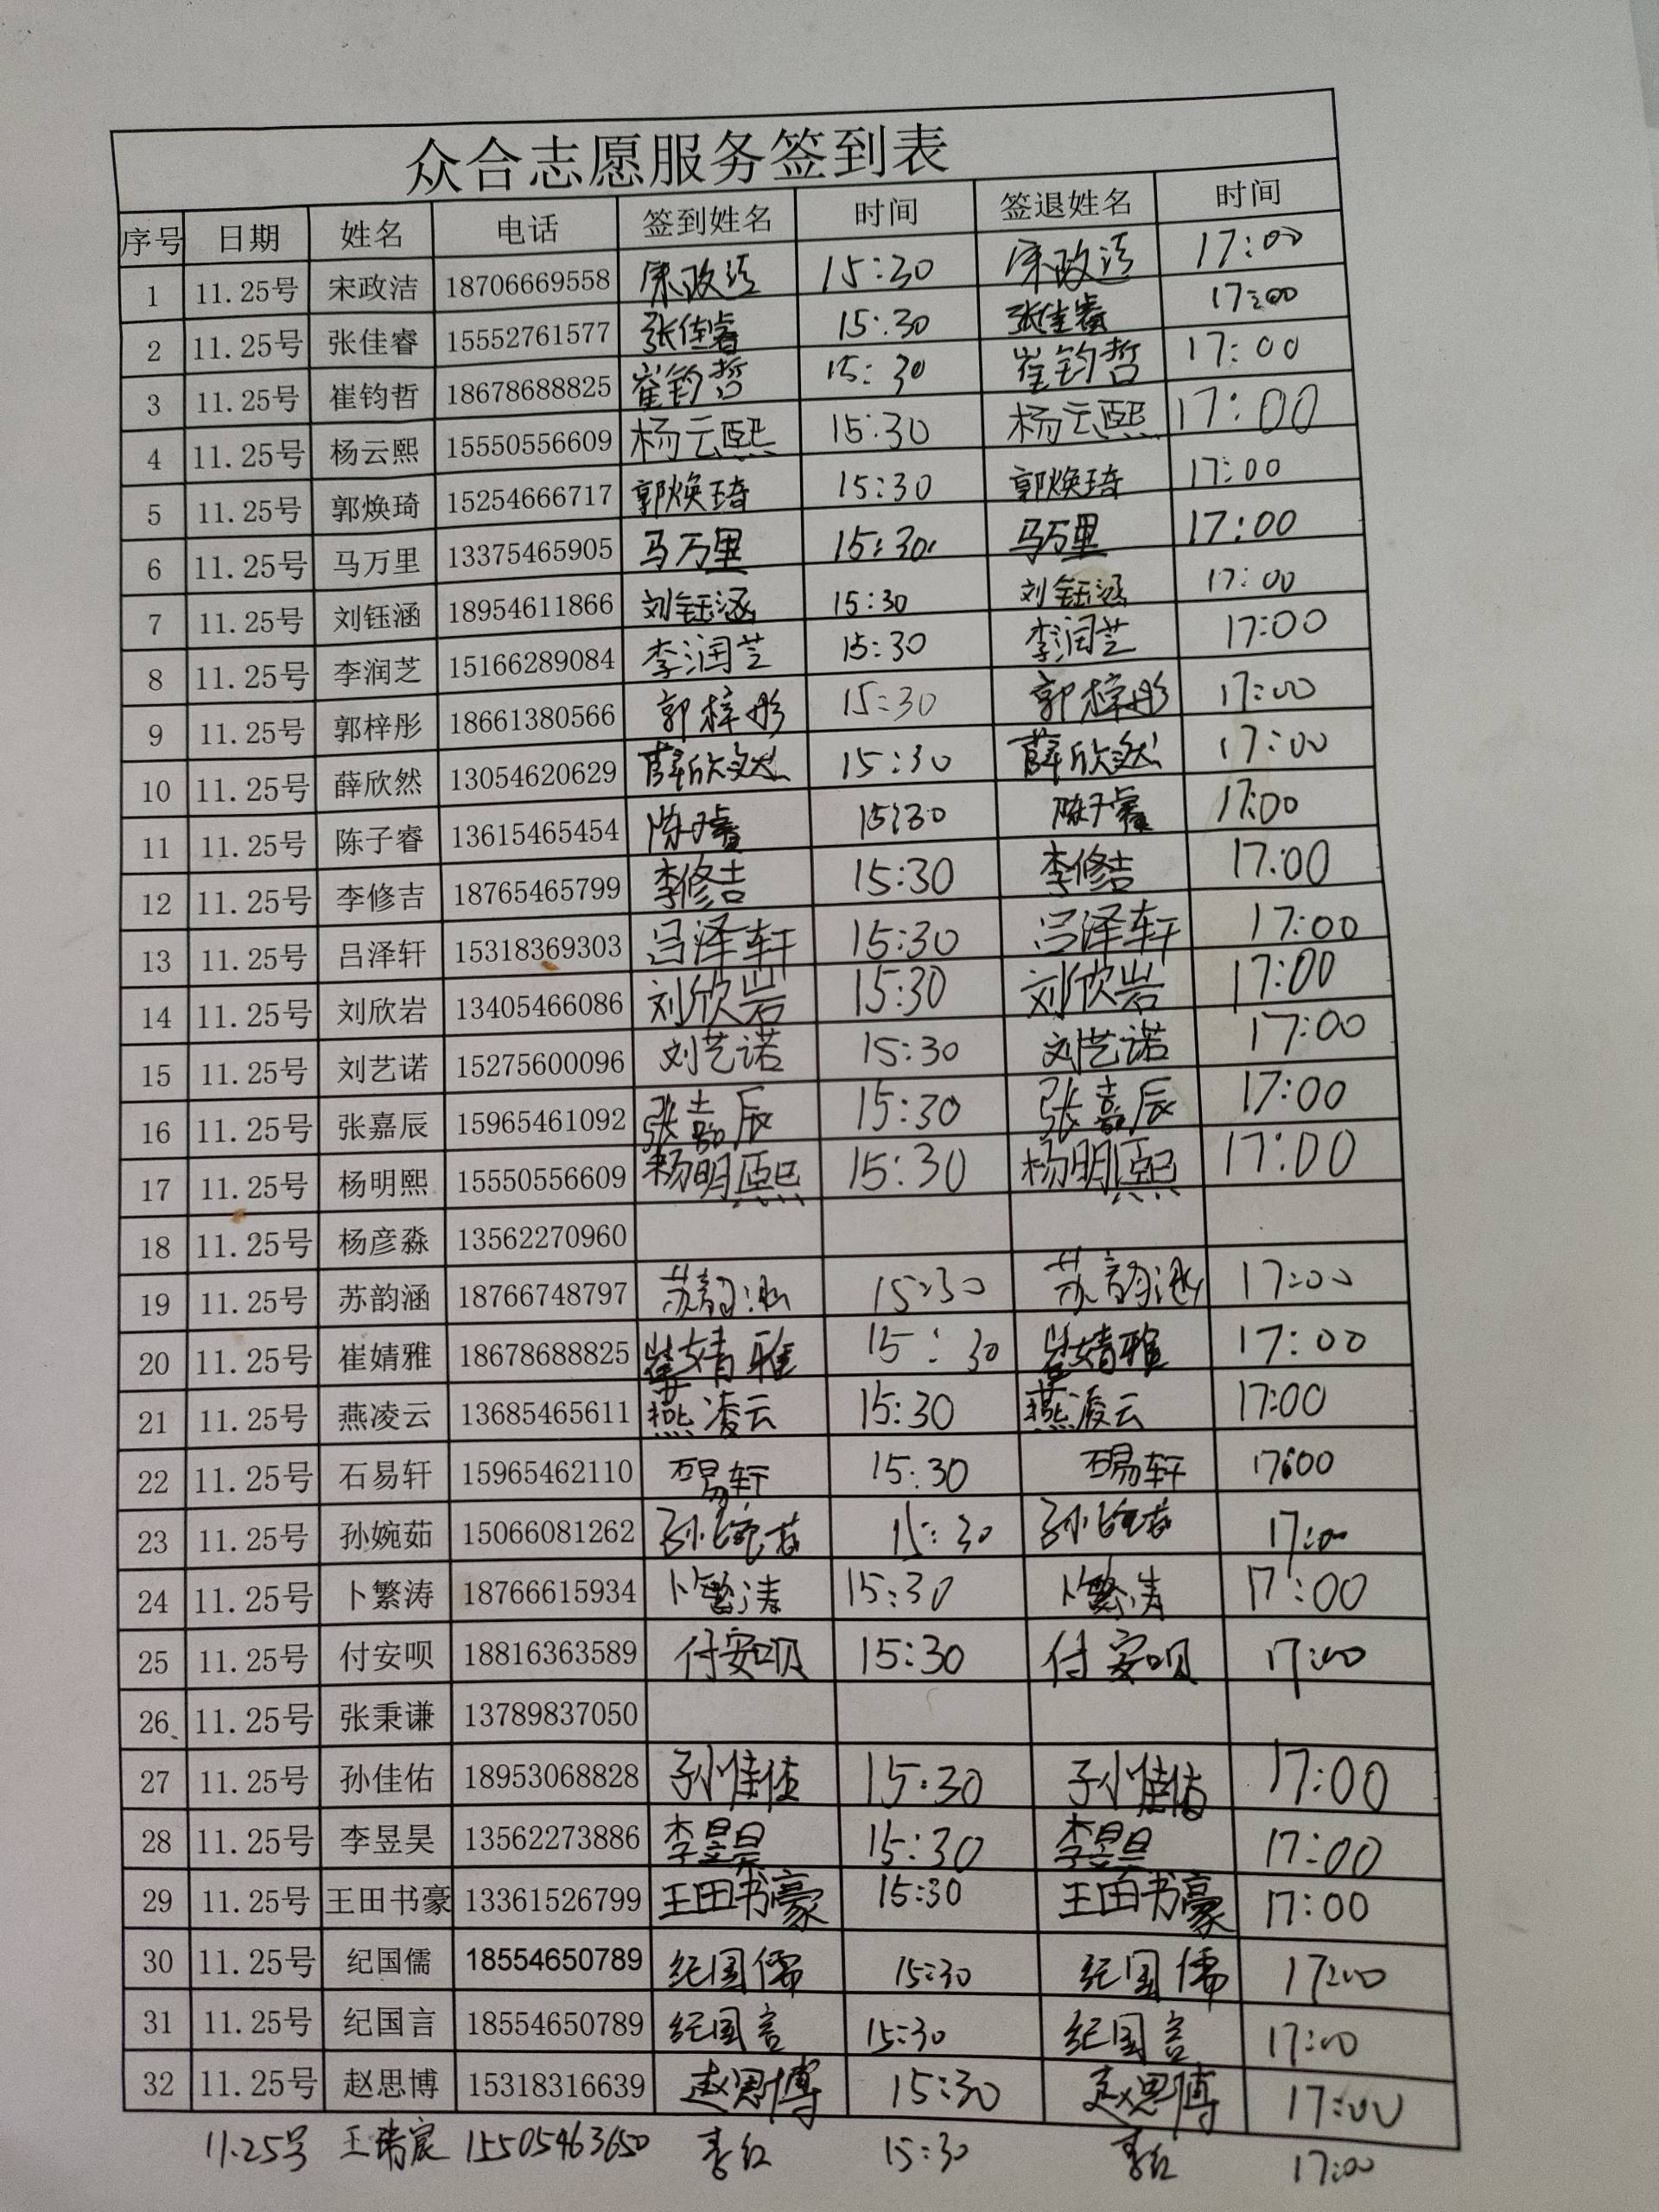 众合志愿服务签到表
序号 日期 姓名 电话 签到姓名 时间 签退姓名 时间
1 11.25号 宋政洁 18706669558 宋政洁 15:30 宋政洁 17:00
2 11.25号 张佳睿 15552761577 张佳睿 15:30 张佳睿 17:00
3 11.25号 崔钧哲 18678688825 崔钧哲 15:30 崔钧哲 17:00
4 11.25号 杨云熙 15550556609 杨云熙 15:30 杨云熙 17:00
5 11.25号 郭焕琦 15254666717 郭焕琦 15:30 郭焕琦 17:00
6 11.25号 马万里 13375465905 马万里 15:30 马万里 17:00
7 11.25号 刘钰涵 18954611866 刘钰涵 15:30 刘钰涵 17:00
8 11.25号 李润芝 15166289084 李润芝 15:30 李润芝 17:00
9 11.25号 郭梓彤 18661380566 郭梓彤 15:30 郭梓彤 17:00
10 11.25号 薛欣然 13054620629 薛欣然 15:30 薛欣然 17:00
11 11.25号 陈子睿 13615465454 陈子睿 15:30 陈子睿 17:00
12 11.25号 李修吉 18765465799 李修吉 15:30 李修吉 17:00
13 11.25号 吕泽轩 15318369303 吕泽轩 15:30 吕泽轩 17:00
14 11.25号 刘欣岩 13405466086 刘欣岩 15:30 刘欣岩 17:00
15 11.25号 刘艺诺 15275600096 刘艺诺 15:30 刘艺诺 17:00
16 11.25号 张嘉辰 15965461092 张嘉辰 15:30 张嘉辰 17:00
17 11.25号 杨明熙 15550556609 杨明熙 15:30 杨明熙 17:00
18 11.25号 杨彦淼 13562270960
19 11.25号 苏韵涵 18766748797 苏韵涵 15:30 苏韵涵 17:00
20 11.25号 崔婧雅 18678688825 崔婧雅 15:30 崔婧雅 17:00
21 11.25号 燕凌云 13685465611 燕凌云 15:30 燕凌云 17:00
22 11.25号 石易轩 15965462110 石易轩 15:30 石易轩 17:00
23 11.25号 孙婉茹 15066081262 孙婉茹 15:30 孙婉茹 17:00
24 11.25号 卜繁涛 18766615934 卜繁涛 15:30 卜繁涛 17:00
25 11.25号 付安呗 18816363589 付安呗 15:30 付安呗 17:00
26 11.25号 张秉谦 13789837050
27 11.25号 孙佳佑 18953068828 孙佳佑 15:30 孙佳佑 17:00
28 11.25号 李昱昊 13562273886 李昱昊 15:30 李昱昊 17:00
29 11.25号 王田书豪 13361526799 王田书豪 15:30 王田书豪 17:00
30 11.25号 纪国儒 18554650789 纪国儒 15:30 纪国儒 17:00
31 11.25号 纪国言 18554650789 纪国言 15:30 纪国言 17:00
32 11.25号 赵思博 15318316639 赵思博 15:30 赵思博 17:00
11.25号 王 15505463650 15:30 17:00